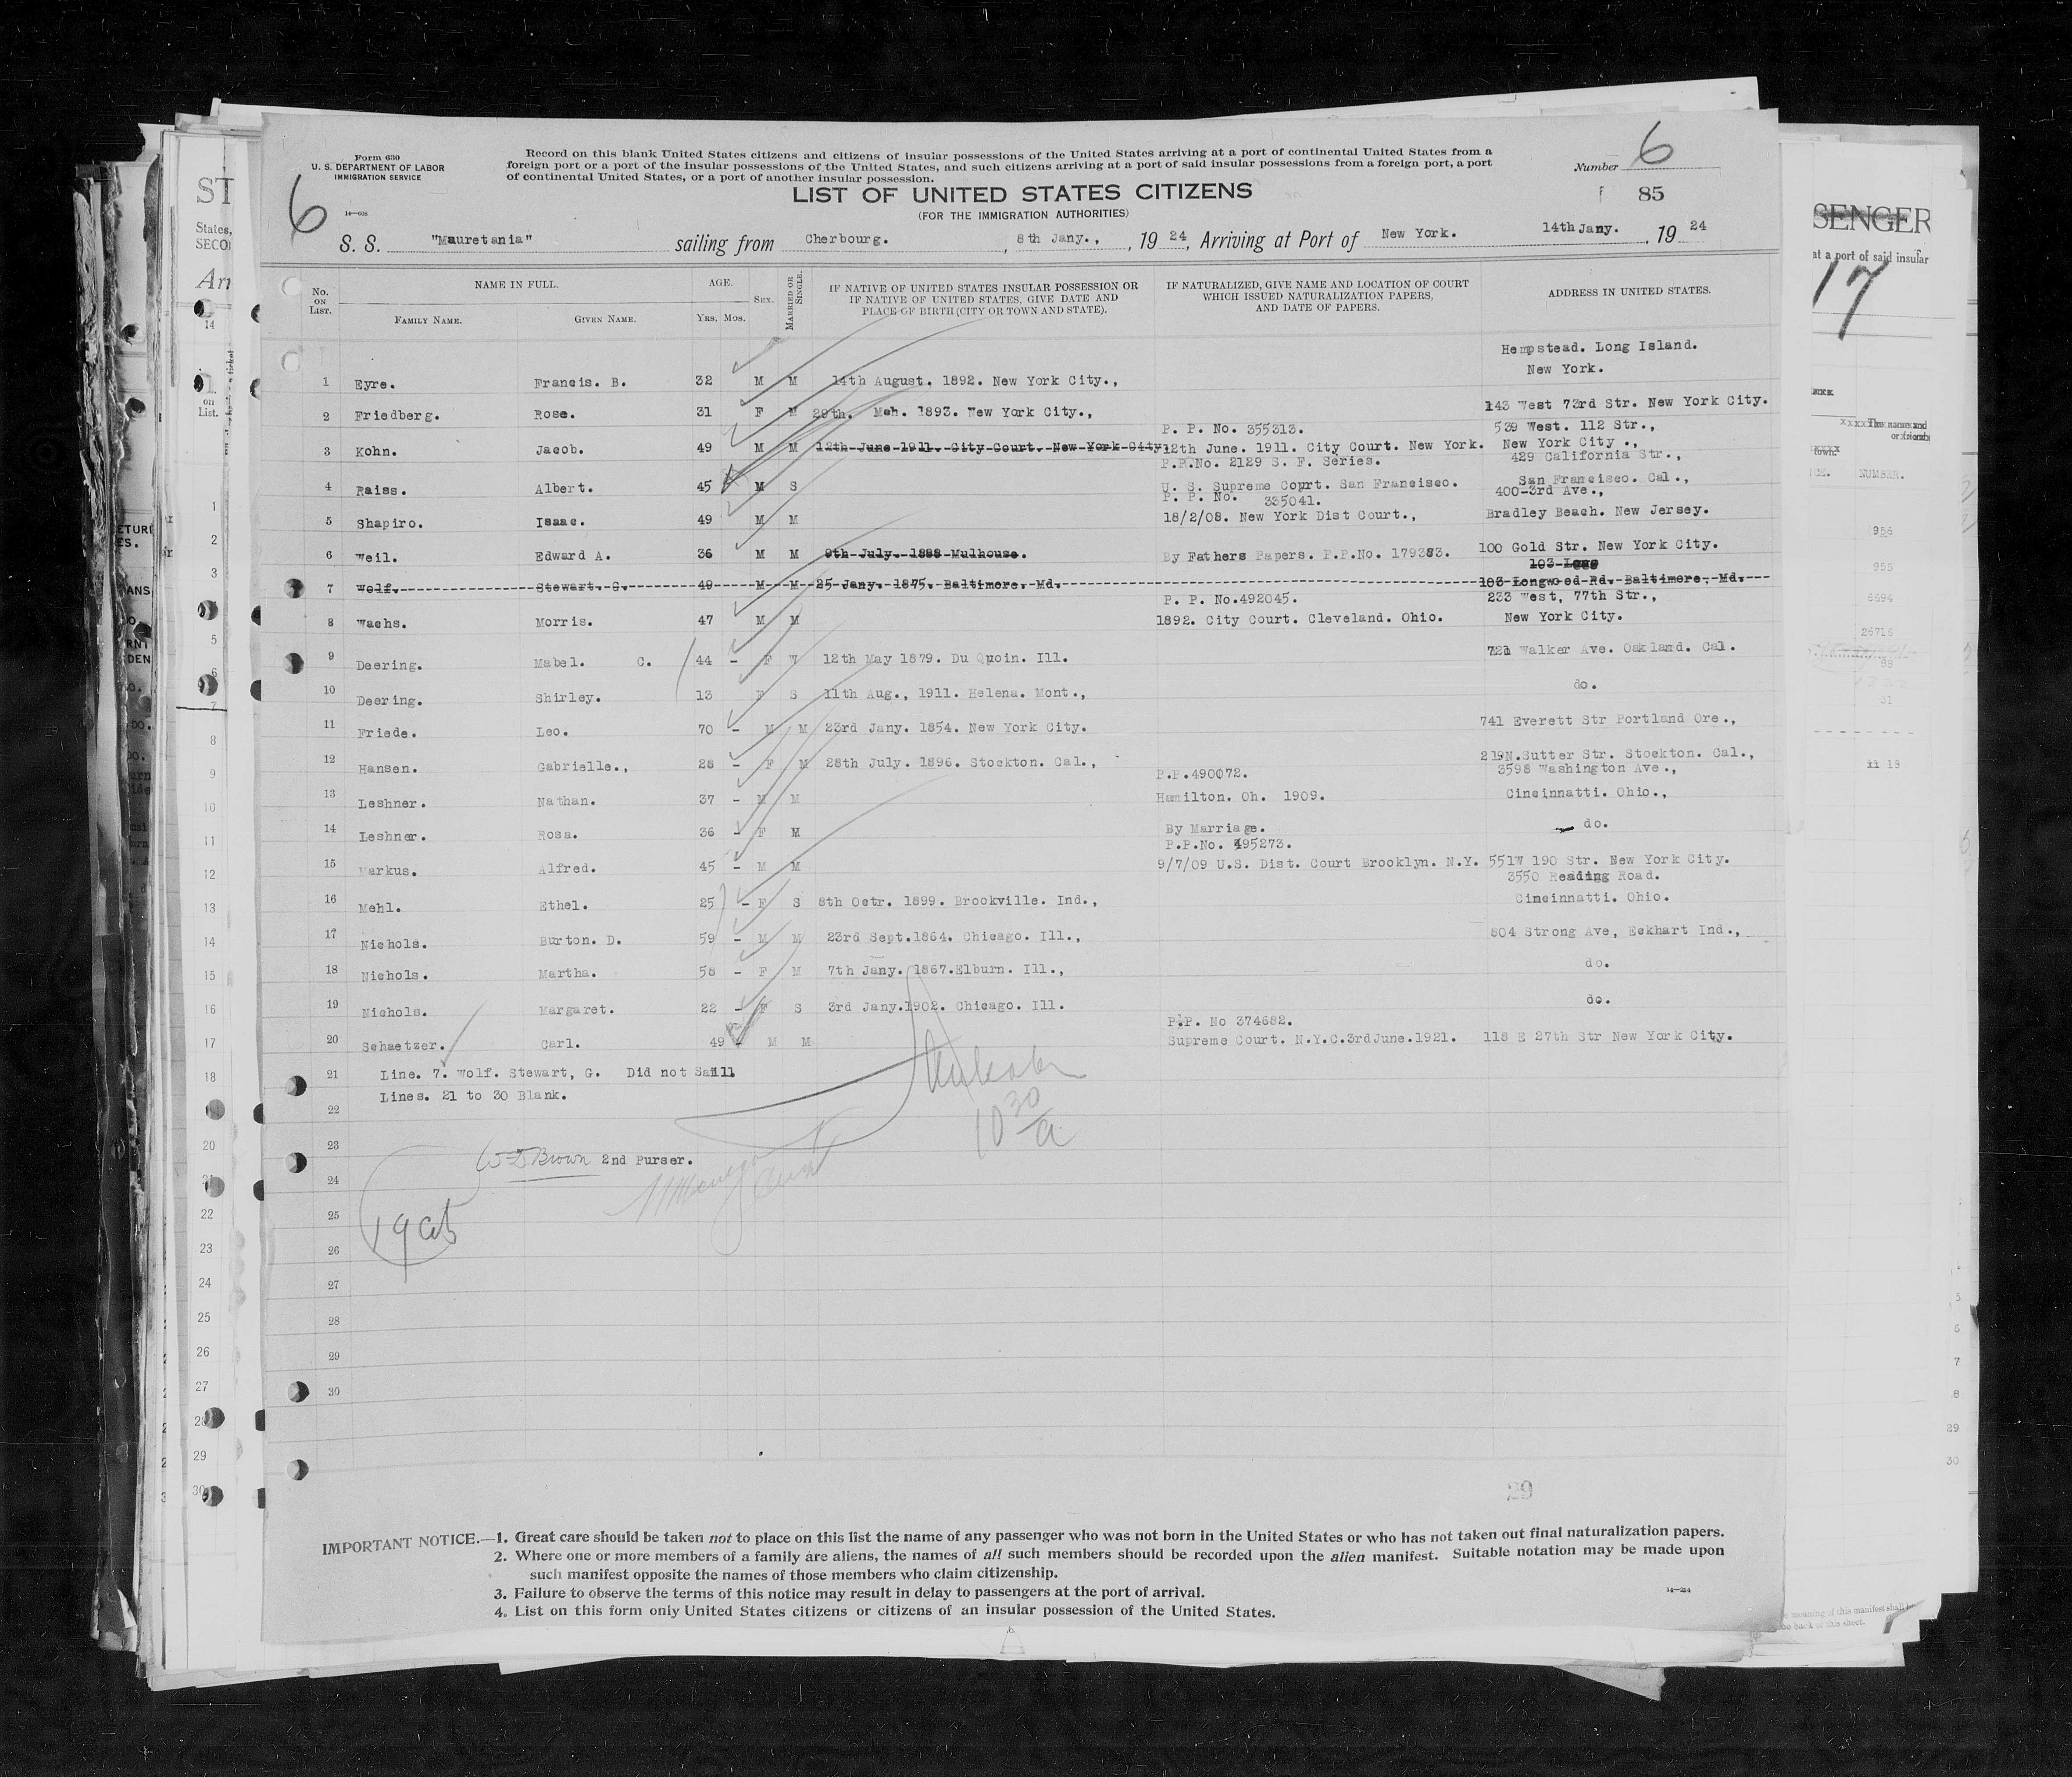 Form 630
U. S. DEPARTMENT OF LABOR
IMMIGRATION SERVICE
14—608
Record on this blank United States citizens and citizens of insular possessions of the United States arriving at a port of continental United States from a
foreign port or a port of the insular possessions of the United States, and such citizens arriving at a port of said insular possessions from a foreign port, a port
of continental United States, or a port of another insular possession.
Number 6
6
LIST OF UNITED STATES CITIZENS
85
(FOR THE IMMIGRATION AUTHORITIES)
S. S. "Mauretania" sailing from Cherbourg. , 8th Jany., , 19 24, Arriving at Port of New York. 14th Jany. , 19 24
No. ON LIST. NAME IN FULL. FAMILY NAME. GIVEN NAME. AGE. YRS. MOS. SEX. MARRIED OR SINGLE. IF NATIVE OF UNITED STATES INSULAR POSSESSION OR IF NATIVE OF UNITED STATES, GIVE DATE AND PLACE OF BIRTH (CITY OR TOWN AND STATE). IF NATURALIZED, GIVE NAME AND LOCATION OF COURT WHICH ISSUED NATURALIZATION PAPERS, AND DATE OF PAPERS. ADDRESS IN UNITED STATES.
Hempstead. Long Island.
New York.
1 Eyre. Francis. B. 32 M M 14th August. 1892. New York City.,
2 Friedberg. Rose. 31 F M 29th. Mch. 1893. New York City., 143 West 73rd Str. New York City.
P. P. No. 355313. 539 West. 112 Str.,
3 Kohn. Jacob. 49 M M 12th June 1911. City Court. New York City. 12th June. 1911. City Court. New York. New York City .,
P.P.No. 2129 S. F. Series. 429 California Str.,
4 Raiss. Albert. 45 M S U. S. Supreme Coprt. San Francisco. San Francisco. Cal.,
P. P. No. 335041. 400-3rd Ave.,
5 Shapiro. Isaac. 49 M M 18/2/08. New York Dist Court., Bradley Beach. New Jersey.
6 Weil. Edward A. 36 M M 9th July. 1888 Mulhouse. By Fathers Papers. P.P.No. 179383. 100 Gold Str. New York City.
103 Long
7 Wolf. Stewart. G. 49 M M 25 Jany. 1875. Baltimore. Md. 103 Longwood Rd. Baltimore, Md.
P. P. No.492045. 233 West, 77th Str.,
8 Wachs. Morris. 47 M M 1892. City Court. Cleveland. Ohio. New York City.
9 Deering. Mabel. C. 44 - F W 12th May 1879. Du Quoin. Ill. 721 Walker Ave. Oakland. Cal.
10 Deering. Shirley. 13 F S 11th Aug., 1911. Helena. Mont., do.
11 Friede. Leo. 70 - M M 23rd Jany. 1854. New York City. 741 Everett Str Portland Ore.,
12 Hansen. Gabrielle., 28 - F M 28th July. 1896. Stockton. Cal., 219N.Sutter Str. Stockton. Cal.,
P.P.490072. 3598 Washington Ave.,
13 Leshner. Nathan. 37 - M M Hamilton. Oh. 1909. Cincinnatti. Ohio.,
14 Leshner. Rosa. 36 - F M By Marriage. do.
P.P.No. 495273.
15 Markus. Alfred. 45 - M M 9/7/09 U.S. Dist. Court Brooklyn. N.Y. 551W 190 Str. New York City.
3550 Reading Road.
16 Mehl. Ethel. 25 - F S 8th Octr. 1899. Brookville. Ind., Cincinnatti. Ohio.
17 Nichols. Burton. D. 59 - M M 23rd Sept.1864. Chicago. Ill., 804 Strong Ave, Eckhart Ind.,
18 Nichols. Martha. 58 - F M 7th Jany. 1867.Elburn. Ill., do.
19 Nichols. Margaret. 22 - F S 3rd Jany.1902. Chicago. Ill. do.
P.P. No 374682.
20 Schaetzer. Carl. 49 - M M Supreme Court. N.Y.C.3rdJune.1921. 118 E 27th Str New York City.
21 Line. 7. Wolf. Stewart, G. Did not Saill
22 Lines. 21 to 30 Blank.
23
W D Brown 2nd Purser.
24
25
26
27
28
29
30
10 30/a
29
IMPORTANT NOTICE.—1. Great care should be taken not to place on this list the name of any passenger who was not born in the United States or who has not taken out final naturalization papers.
2. Where one or more members of a family are aliens, the names of all such members should be recorded upon the alien manifest. Suitable notation may be made upon
such manifest opposite the names of those members who claim citizenship.
3. Failure to observe the terms of this notice may result in delay to passengers at the port of arrival.
4. List on this form only United States citizens or citizens of an insular possession of the United States.
14—214
SENGER
at a port of said insular
17
NUMBER.
956
955
6694
26716